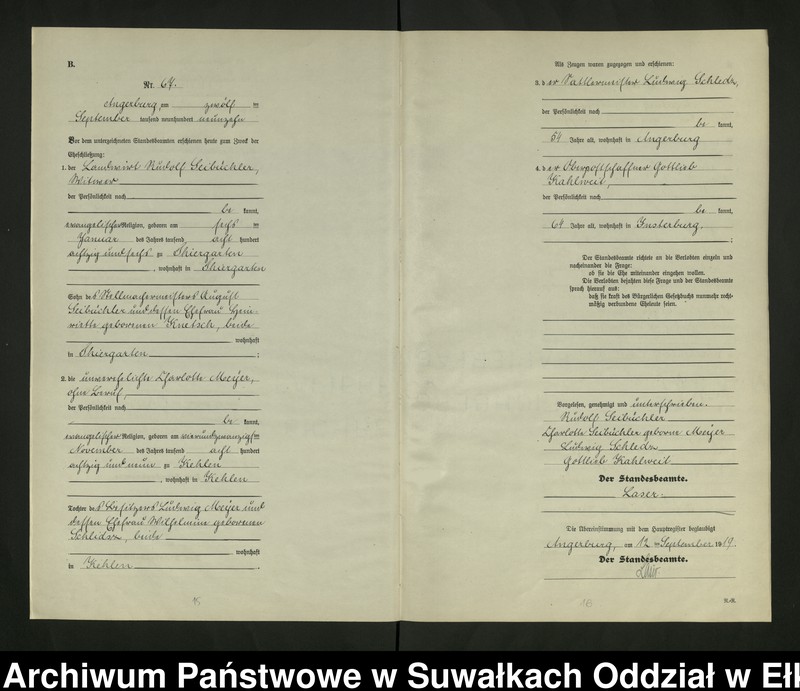 B.
Nr. 67.
Angerburg, am zwölf ten
September tausend neunhundert neunzehn
Vor dem unterzeichneten Standesbeamten erschienen heute zum Zweck der
Eheschließung:
1. der Landwirt Rudolf Seibüchler,
Witwer
der Persönlichkeit nach
be kannt,
evangelischer Religion, geboren am sechs ten
Januar des Jahres tausend acht hundert
achtzig und sechs zu Thiergarten
, wohnhaft in Thiergarten
Sohn des Stellmachermeisters August
Seibüchler und dessen Ehefrau Hen-
riette geborenen Knetsch, beide
wohnhaft
in Thiergarten ;
2. die unverehelichte Charlotte Meyer,
ohne Beruf,
der Persönlichkeit nach
be kannt,
evangelischer Religion, geboren am vierundzwanzigsten
November des Jahres tausend acht hundert
achtzig und neun zu Kehlen
, wohnhaft in Kehlen
Tochter des Besitzers Ludwig Meyer und
dessen Ehefrau Wilhelmine geborenen
Schledz, beide
wohnhaft
in Kehlen .
15
Als Zeugen waren zugezogen und erschienen:
3. der Sattlermeister Ludwig Schledz,
der Persönlichkeit nach
be kannt,
59 Jahre alt, wohnhaft in Angerburg
4. der Oberpostschaffner Gottlieb
Kahlweit,
der Persönlichkeit nach
be kannt,
64 Jahre alt, wohnhaft in Insterburg.
;
Der Standesbeamte richtete an die Verlobten einzeln und
nacheinander die Frage:
ob sie die Ehe miteinander eingehen wollen.
Die Verlobten bejahten diese Frage und der Standesbeamte
sprach hierauf aus:
daß sie kraft des Bürgerlichen Gesetzbuchs nunmehr recht-
mäßig verbundene Eheleute seien.
Vorgelesen, genehmigt und unterschrieben.
Rudolf Seibüchler
Charlotte Seibüchler geborene Meyer
Ludwig Schledz
Gottlieb Kahlweit
Der Standesbeamte.
Laser.
Die Übereinstimmung mit dem Hauptregister beglaubigt
Angerburg, am 12 ten September 1919.
Der Standesbeamte.
Laser.
16
Archiwum Państwowe w Suwałkach Oddział w Ełk